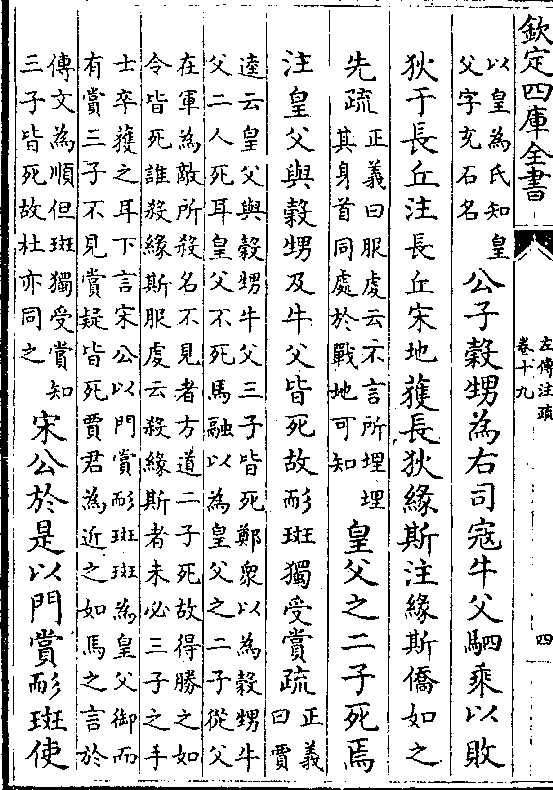 欽定四庫全書
左傳注疏
卷十九
四
以皇為氏知皇
父字充石名
公子穀甥為右司寇牛父駟乘以敗
狄于長丘注長丘宋地獲長狄緣斯注緣斯僑如之
先疏
正義曰服虔云不言所埋埋
其身首同處於戰地可知
皇父之二子死焉
注皇父與穀甥及牛父皆死故耏班獨受賞疏
正義
曰賈
逵云皇父與穀甥牛父三子皆死鄭衆以為穀甥牛
父二人死耳皇父不死馬融以為皇父之二子從父
在軍為敵所殺名不見者方道二子死故得勝之如
令皆死誰殺緣斯服虔云殺緣斯者未必三子之手
士卒獲之耳下言宋公以門賞耏班班為皇父御而
有賞三子不見賞疑皆死賈君為近之如馬之言於
傳文為順但班獨受賞知
三子皆死故杜亦同之
宋公於是以門賞耏班使